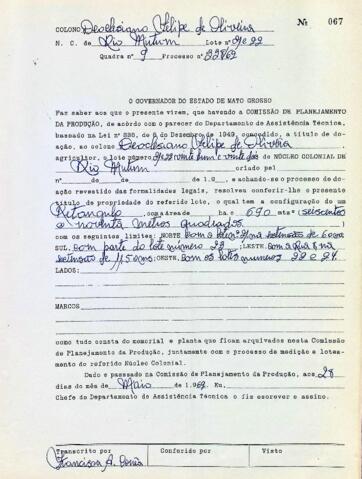 Nº 067
COLONO Deoclesiano Felipe de Oliveira
N. C. de Rio Mutum Lote nº 21 e 22
Quadra nº 9 Processo nº 22862
O GOVERNADOR DO ESTADO DE MATO GROSSO
Faz saber aos que o presente virem, que havendo a COMISSÃO DE PLANEJAMENTO
DA PRODUÇÃO, de acôrdo com o parecer do Departamento de Assistência Técnica,
baseado na Lei nº 336, de 6 de Dezembro de 1949, concedido, a título de doa-
ção, ao colono Deoclesiano Felipe de Oliveira
agricultor, o lote número 21 e 22 vinte hum e vinte dois do NÚCLEO COLONIAL DE
Rio Mutum criado pel
nº de de de 1.9 , e achando-se o processo de do-
ação revestido das formalidades legais, resolveu conferir-lhe o presente
título de propriedade do referido lote, o qual tem a configuração de um
Retangulo com a área de ha e 690 mts² (seiscentos
e noventa metros quadrados )
com os seguintes limites: NORTE com o lote nº na extensão de
SUL, com parte do lote numero 23 ;LESTE com a Rua na
extensão de 15 ;OESTE, com os lotes numeros 22 e 24.
LADOS:
MARCOS
como tudo consta do memorial e planta que ficam arquivados nesta Comissão
de Planejamento da Produção, juntamente com o processo de medição e lotea-
mento do referido Núcleo Colonial.
Dado e passado na Comissão de Planejamento da Produção, aos 28
dias do mês de Maio de 1.962. Eu,
Chefe do Departamento de Assistência Técnica o fiz escrever e assino.
Transcrito por Conferido por Visto
Francisca A.